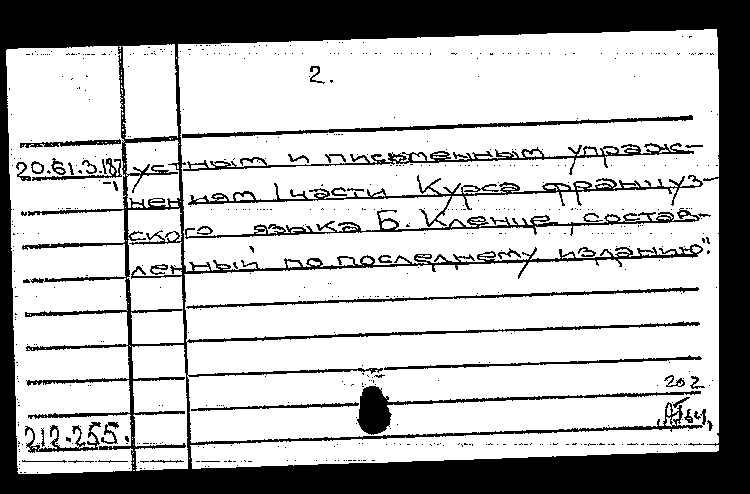 2.
20.61.3.187 устным и письменным упраж-
-1 нениям I части Курса француз-
ского языка Б. Кленце, состав-
ленный по последнему изданию".
202
212.255.